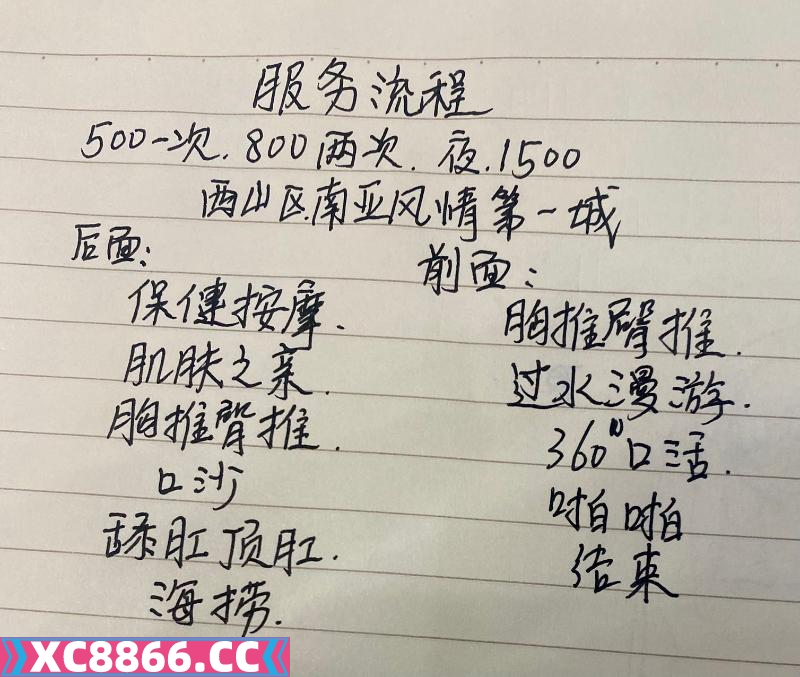 服务流程
500一次.800两次.夜.1500
西山区南亚风情第一城
后面:
保健按摩.
肌肤之亲.
胸推臀推.
口沙
舔肛顶肛.
海捞.
前面:
胸推臀推.
过水漫游.
360°口活.
啪啪
结束
XC8866.CC